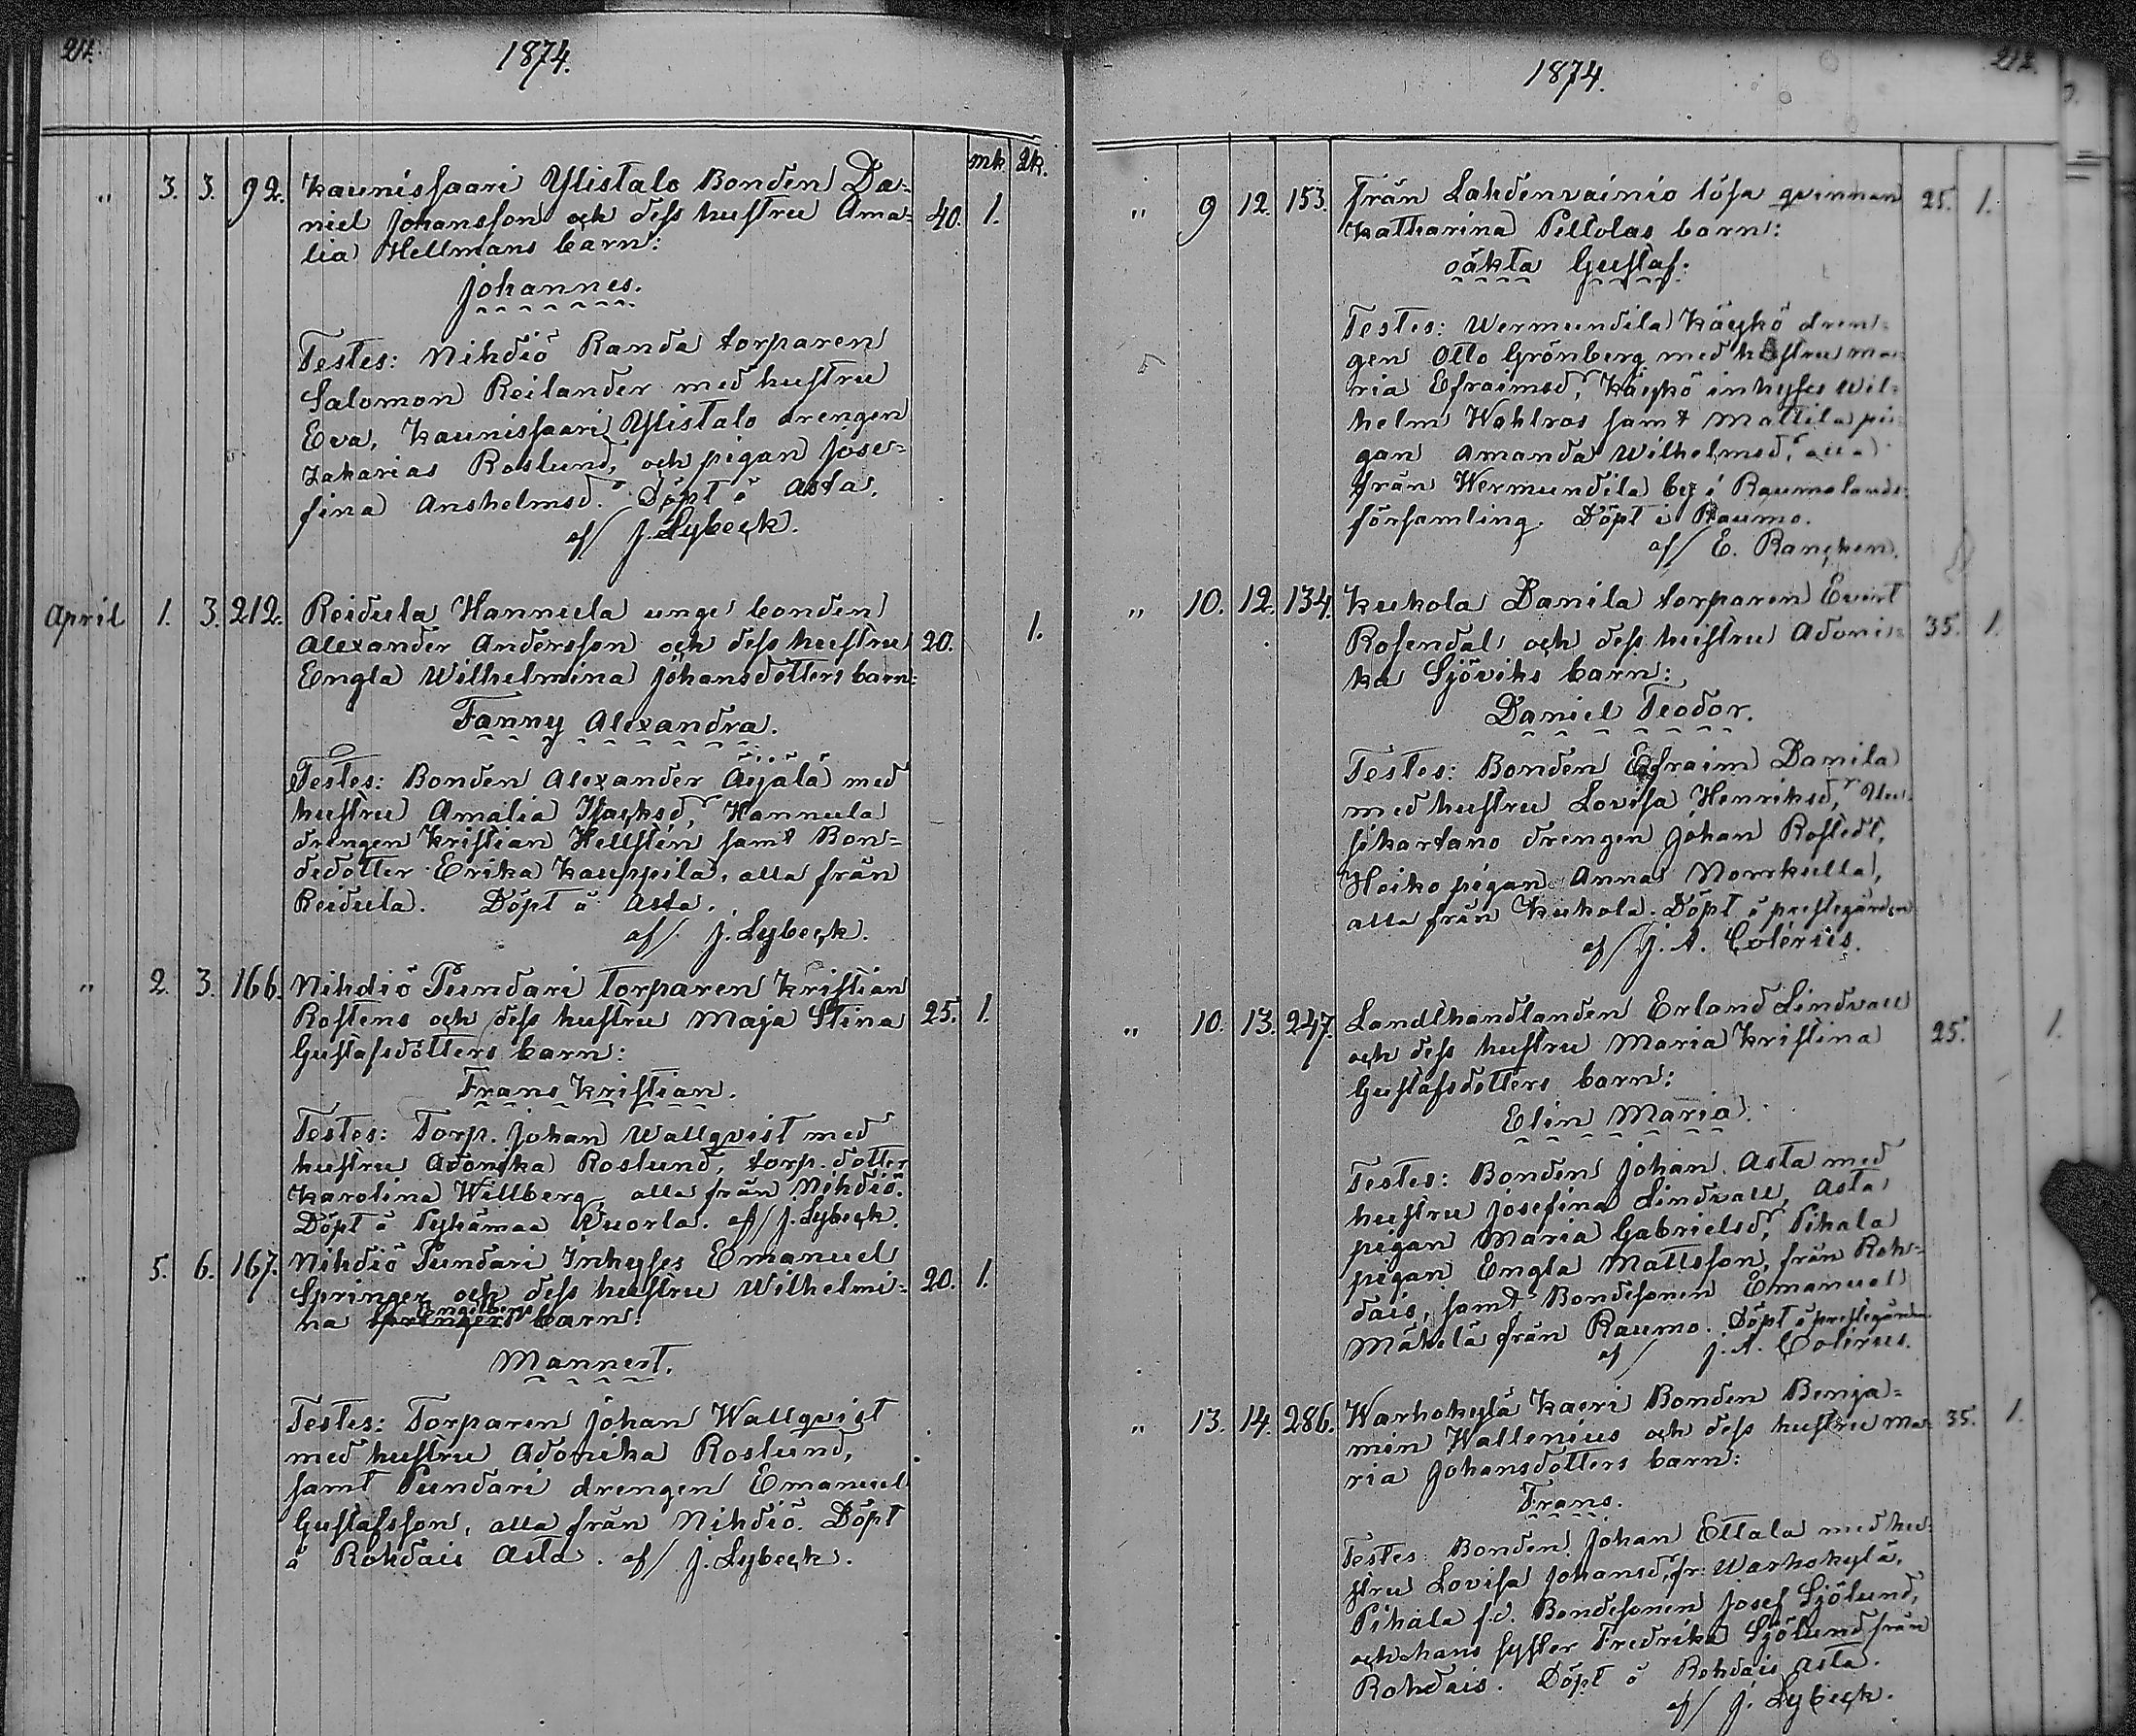 211.
1874.
mk. qk.
" 3. 3. 92. Kaunissaari Ylistalo Bonden Da=
niel Johansson och dess hustru Ama= 40. 1.
lia Hellmans barn:
Johannes.
Testes: Nihdiö Randa torparen
Salomon Reilander med hustru
Eva, Kaunissaari Ylistalo drengen
Zakarias Roslund, och pigan Jose=
fina Anshelmsdr. Döpt å Asta,
af/ J. Lybeck.
April 1. 3. 212. Reidula Hannula unge bonden
Alexander Andersson och dess hustru 20. 1.
Engla Wilhelmina Johansdotters barn:
Fanny Alexandra.
Testes: Bonden Alexander Äijälä med
hustru Amalia Isacksdr, Hannula
drengen Kristian Hellsten samt Bon=
dedotter Erika Kauppila, alla från
Reidula. Döpt å Asta.
af/ J. Lybeck.
" 2. 3. 166. Nihdiö Pundari torparen Kristian
Rostens och dess hustru Maja Stina 25. 1.
Gustafsdotters barn:
Frans Kristian.
Testes: Torp. Johan Wallqvist med
hustru Adonika Roslund, torp. dotter
Karolina Willberg alla från Nihdiö.
Döpt å Pyhämaa Vuorla. af/ J. Lybeck.
" 5. 6. 167. Nihdiö Pundari Inhyses Emanuel
Springer och dess hustru Wilhelmi= 20. 1.
na Springers barn:
Mannert.
Testes: Torparen Johan Wallqvist
med hustru Adonika Roslund,
samt Pundari drengen Emanuel
Gustafsson, alla från Nihdiö. Döpt
å Rohdais Asta. af/ J. Lybeck.
212.
1874.
" 9 12. 153. Från Lahdenvainio lösa qvinnan 25. 1.
Katharina Peltolas barn:
oäkta Gustaf.
Testes: Wermundila Käykö dren=
gen Otto Grönberg med hustru Ma=
ria Efraimsdr, Käykö inhyses Wil=
helm Wahlros samt Mattila pi=
gan Amanda Wilhelmsdr, alla
från Wermundila by i Raumolands
församling. Döpt i Raumo.
af/ E. Rancken.
" 10. 12. 134. Kukola Danila torparen Evert
Rosendal och dess hustru Adoni= 35. 1.
ka Sjöviks barn:
Daniel Teodor.
Testes: Bonden Efraim Danila
med hustru Lovisa Henriksdr, Uu=
sikartano drengen Johan Rostedt,
Heiko pigan Anna Norrkulla,
alla från Kukola. Döpt å prestegården
af/ J. A. Colérus.
" 10. 13. 247. Landthandlanden Erland Lindvall
och dess hustru Maria Kristina 25. 1.
Gustafsdotters barn:
Elin Maria.
Testes: Bonden Johan Asta med
hustru Josefina Lindvall, Asta
pigan Maria Gabrielsdr, Pihala
pigan Engla Mattsson, från Roh=
dais, samt Bondesonen Emanuel
Mäkelä från Raumo. Döpt å prestegården
af/ J. A. Colérus.
" 13. 14. 286. Warhokylä Kaeri Bonden Benja=
min Wallenius och dess hustru Ma 35. 1.
ria Johansdotters barn:
Frans.
Testes: Bonden Johan Ettala med hu=
stru Lovisa Johansdr, fr. Warhokylä,
Pihala f.d. Bondesonen Josef Sjölund,
och hans syster Fredrika Sjölund från
Rohdais. Döpt å Rohdais Asta.
af/ J. Lybeck.